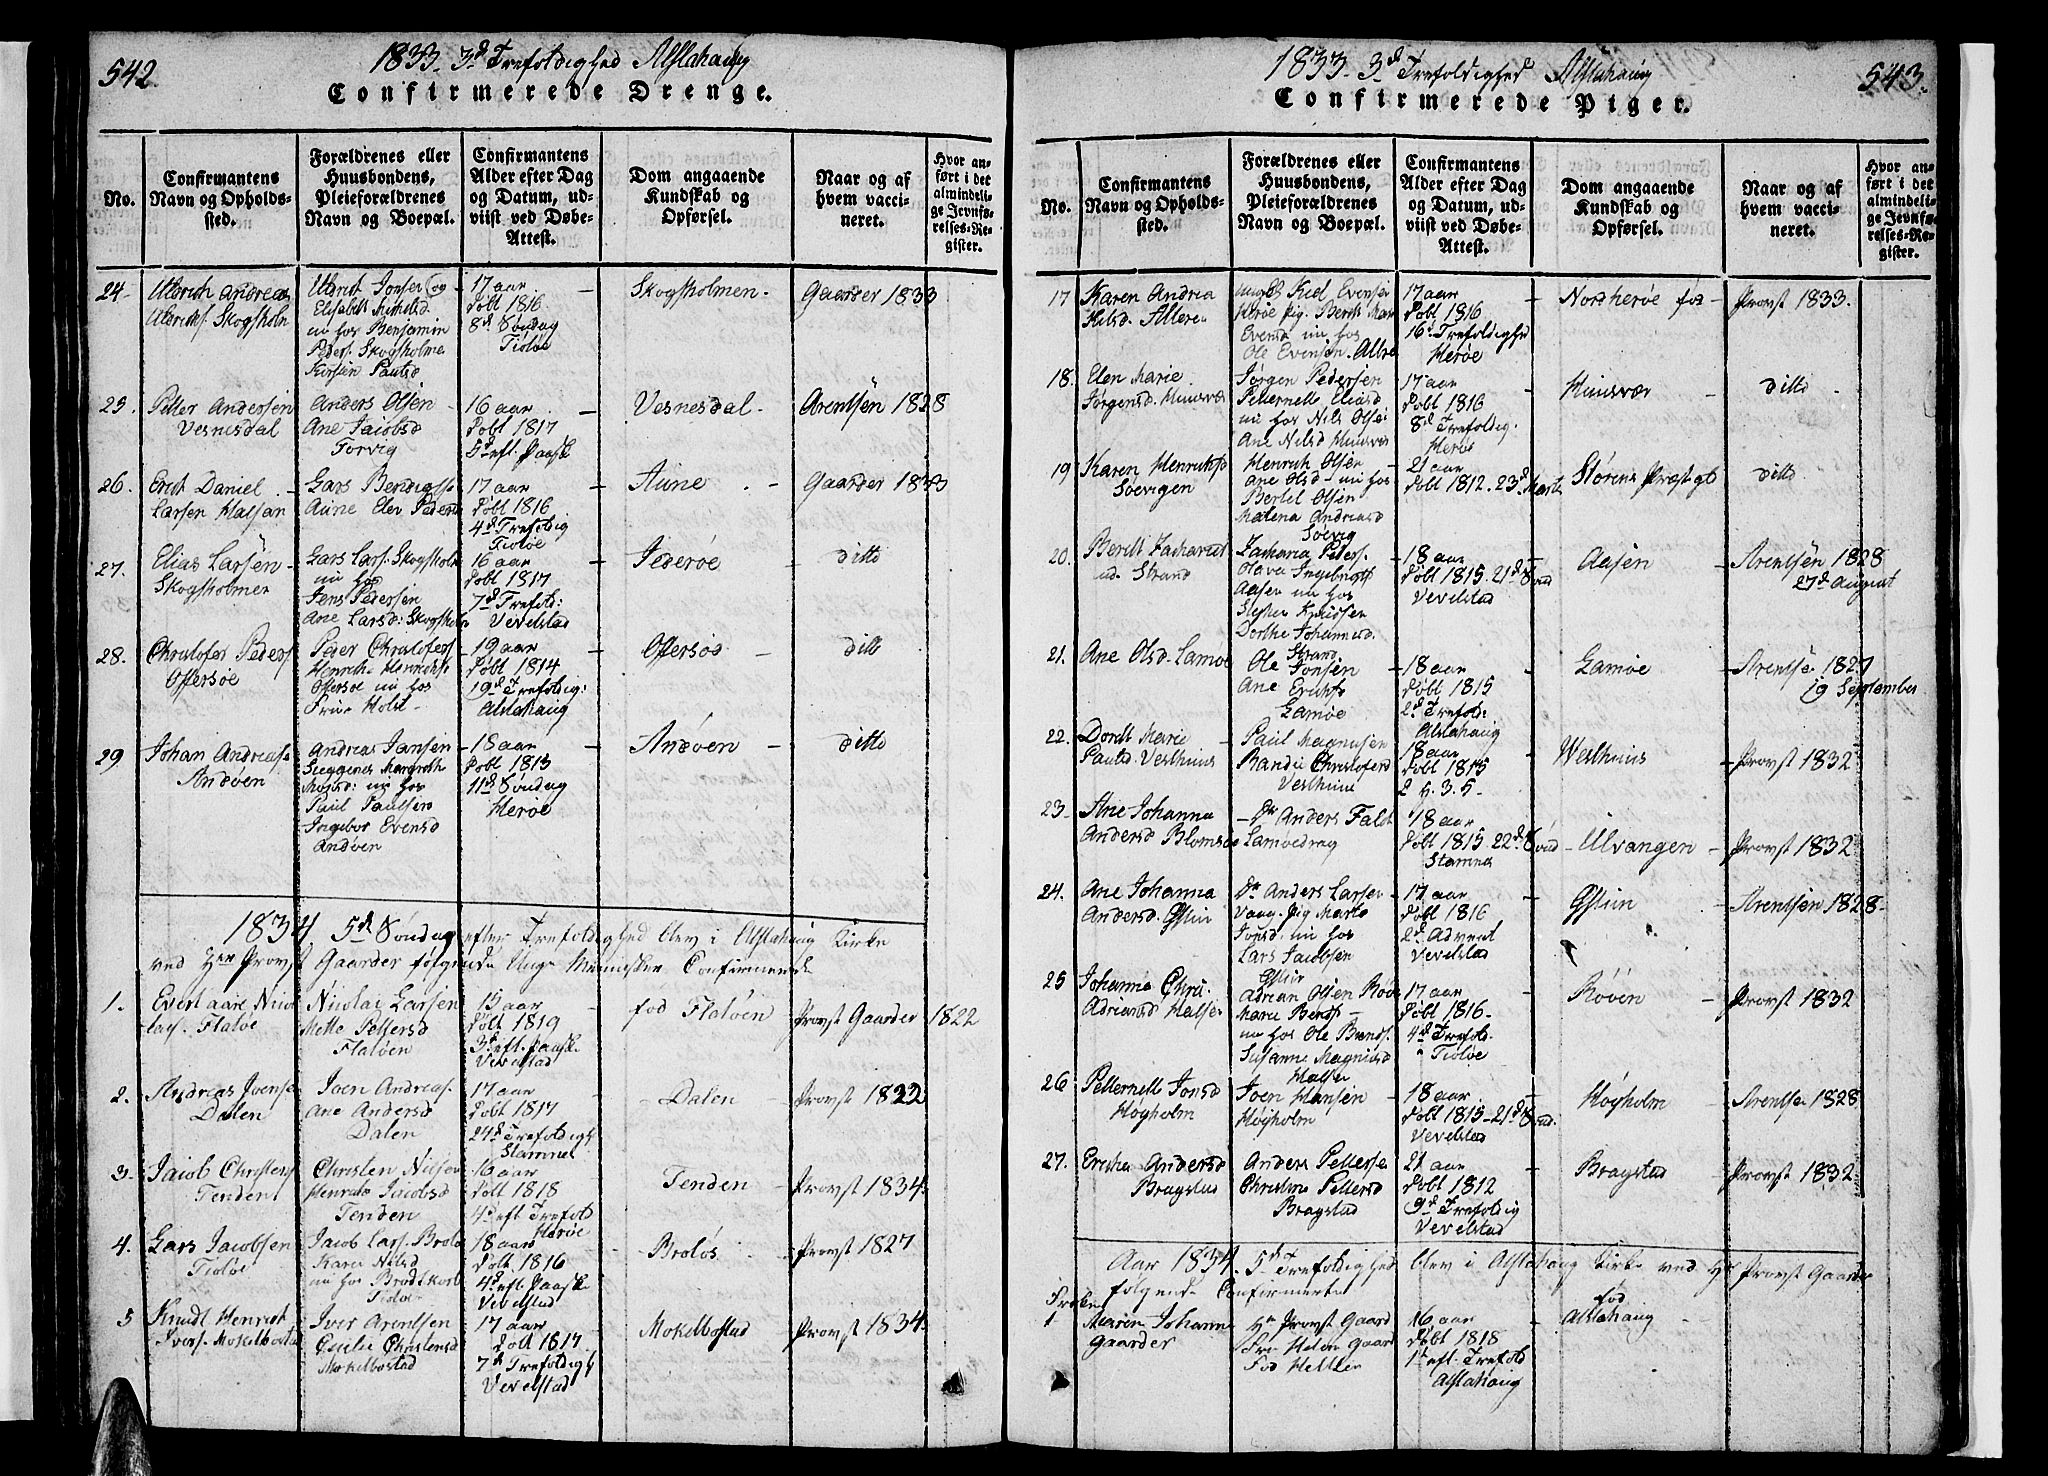 542.
1833. 3d Trefoldighed Alstahaug
Confirmerede Drenge.
No.
Confirmantens
Navn og Opholds-
sted.
Forældrenes eller
Huusbondens,
Pleieforældrenes
Navn og Boepæl.
Confirmantens
Alder efter Dag
og Datum, ud-
viist ved Døbe-
Attest.
Dom angaaende
Kundskab og
Opførsel.
Naar og af
hvem vacci-
neret.
Hvor an-
ført i det
almindeli-
ge Jevnfø-
relses-Re-
gister.
24-
Ulbrich Andreas
Ulbrichs. Skogsholm
Ulbrich Jonsen og
Elisabeth Mikkelsd
nu hos Benjamin
Peders. Skogsholme
Kirsten Paulsd
17 aar
døbt 1816
8d Søndag
Tiotøe
Skogsholmen-
Gaarder 1833
25.
Petter Andersen
Vesnesdal
Anders Olsen
Ane Jacobsd
Forvig
16 aar
døbt 1817
5d eft. Paaske
Vesnesdal-
Arentsen 1828
26.
Erich Daniel
Larsen Halsan
Lars Bendigts
Aune Elen Pedersd
17 aar
døbt 1816
4d Trefoldig
Tiotøe
Aune
Gaarder 1833
27.
Elias Larsen
Skogsholmen
Lars Lars. Skogsholm
nu hos
Jens Pedersen
Ane Larsd: Skogsholm
16 aar
døbt 1817
7d Trefold:
Vevelstad
Jederøe
ditto
28.
Christofer Peders
Offersøe
Peder Christofers
Henrikke Henrichs
Offersøe nu hos
Trine Holst-
19 aar
døbt 1814
19d Trefoldig:
Alstahaug
Offersøe
ditto
29
Johan Andreas.
Andøen
Andreas Jansen
Siggenes Margreth
nu hos
Paul Paulsen
Ingebor Evensd
Andøen
18 aar
døbt 1815
11d Søndag
Herøe
Andøen
ditto
1834 5d Søndag efter Trefoldighed blev i Alstahaug Kirke
ved Hrr Provst Gaarder følgende Unge Mennesker Confirmerede
1.
Evert aare Nico
lais. Flatøe
Nicolai Larsen
Mette Pettersd
Flatøen
15 aar
døbt 1819
3d eft. Paaske
Vevelstad
fød Flatøen
Provst Gaarder 1822
2.
Andreas Joense
Dalen
Joen Andreas.
Ane Andersd
Dalen
17 aar
døbt 1817
24d Trefoldigh
Stamnes
Dalen
Provst 1822
3.
Jacob Christens
Tenden
Christen Nilsen
Henrike Jacobsd
Tenden
16 aar
døbt 1818
4d eft Trefold
Herøe
Tenden
Provst 1834.
4.
Lars Jacobsen
Tiotøe
Jacob Lars. Brolø
Karen Nilsd
nu hos Brodtkorb
Tiotøe
18 aar
døbt 1816
4d eft. Paaske
Vevelstad
Broløs
Provst 1827
5
Knudt Henrich
Ivers. Mokelbostad
Iver Arentsen
Cecilie Christensd
Mokelbostad
17 aar
døbt 1817
7d Trefoldigh
Vevelstad
Mokelbostad
Provst 1834.
1833. 3d Trefoldighed Alstahaug
543.
Confirmerede Piger.
No.
Confirmantens
Navn og Opholds-
sted.
Forældrenes eller
Huusbondens,
Pleieforældrenes
Navn og Boepæl.
Confirmantens
Alder efter Dag
og Datum, ud-
viist ved Døbe-
Attest.
Dom angaaende
Kundskab og
Opførsel.
Naar og af
hvem vacci-
neret.
Hvor an-
ført i det
almindeli-
ge Jevnfø-
relses-Re-
gister.
17
Karen Andria
Kilsd. Alteren
ungk Kiel Evensen
Herøe Pig. Berith Mar
Evensd nu hos
Ole Evensen. Altre
17 aar
døbt 1816
16d Trefoldighe
Herøe
Nordherøe
Provst 1833.
18.
Elen Marie
Jørgensd. Huusvær
Jørgen Pedersen
Petternelle Eliasd
nu hos Nils Olsen
Ane Nilsd Huusvær
17 aar
døbt 1816
8d Trefoldig.
Herøe
Huusvær
ditto
19
Karen Henriksd
Søevigen
Henrich Olsen
Ane Olsd- nu hos
Bertel Olsen
Malena Andreasd
Søevig
21 aar
døbt 1812. 23d Marts
Størens Præstgb
ditto
20.
Berdt Zacharias
d. Strand
Zacharia Peders.
Olava Ingebrigts
Aasen nu hos
Knudsen
Dorthe Johannesd.
Strand
18 aar
døbt 1815. 21d Sønd
Vevelstad
Aasen
Arentsen 1828
27d August
21.
Ane Olsd. Lamøe
Ole Jonsen
Ane Eriksd
Lamøe
18 aar
døbt 1815
2d Trefold:
Alstahaug
Lamøe
Arentsen 1827
19 September
22.
Dordt Marie
Paulsd Vesthuus
Paul Magnusen
Randie Christofersd
Vesthuus
18 aar
døbt 1815
2 S. 3. 5-
Westhuus
Provst 1832
23-
Ane Johanna
Andersd Blomsøe
Anders Falch
Lamøedrag
18 aar
døbt 1815- 22d Sønd
Stamnes
Ulvangen
Provst 1832
24.
Ane Johanna
Andersd.
Anders Larsen
Vaag. Pig Marte
Jonsd. nu hos
Lars Jacobsen
17 aar
døbt 1816
2d Advent
Vevelstad
Arentsen 1828-
25
Johanna Chri.
Adriansd Halse
Adrian Olsen Røe
Marie Bends
nu hos Ole Brends.
Susanne Magnusd
Halse
17 aar
døbt 1816-
4d Trefold-
i Tiotøe
Røøen
Provst 1832
26
Petternell Jonsd
Høgholm
Joen Hansen
Høgholm
18 aar
døbt 1815- 21d Sønd.
Vevelstad
Høgholm
Arentse 1828
27.
Andersd
Bragstad
Anders Petterse
Christine Pettersd
Bragstad
21 aar
døbt 1812
9d Trefoldig
Vevelstad
Bragstad
Provst 1832
Aar 1834. 5d Trefoldighed blev i Alstahaug Kirke ved Hr Provst Gaarder
følgende Confirmerte
Frøken
1
Maren Johanne
Gaarder
Hr Provst Gaard
Fru Helene Gaar
Fød Heltzen
16 aar
døbt 1818
1d eft. Trefold
Alstahaug
fød
Alstahaug